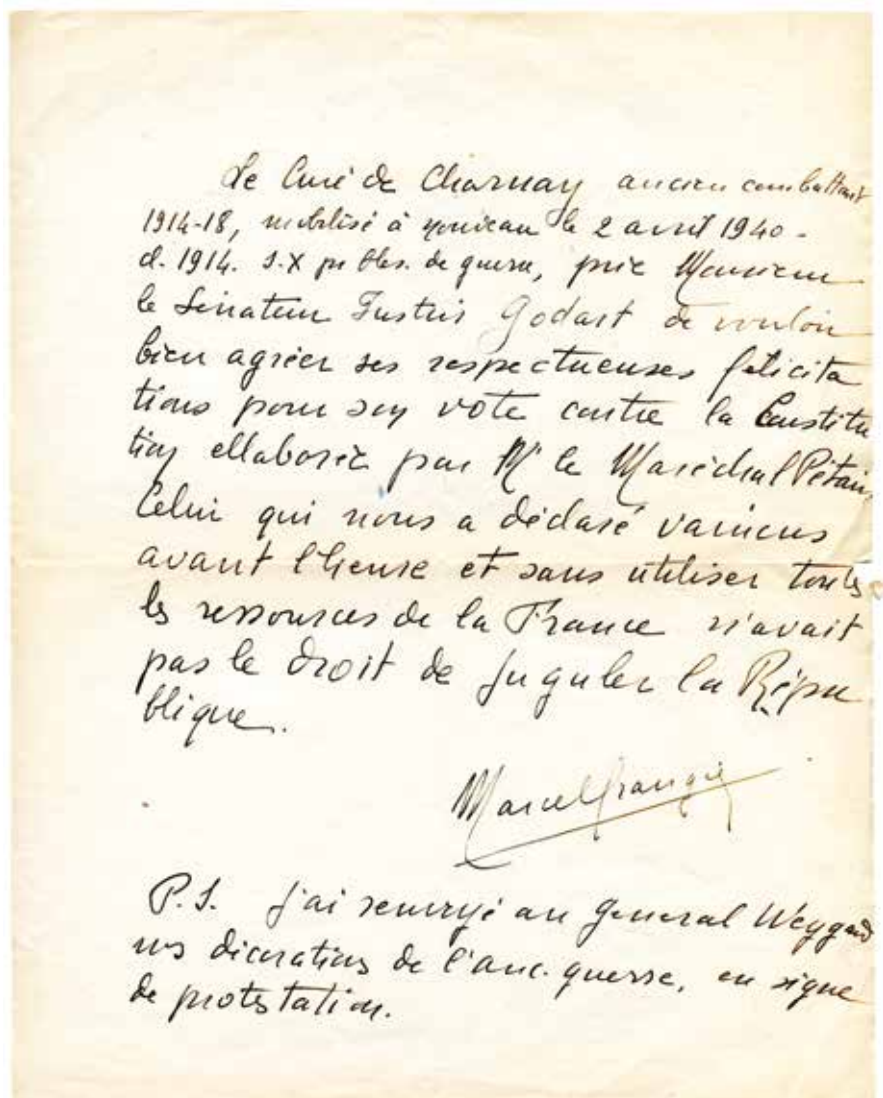 Le Curé de Charnay ancien combattant
1914-18, mobilisé à nouveau le 2 avril 1940 -
cl. 1914. s.X de guerre, prie Monsieur
le Sénateur Justin Godart de vouloir
bien agréer ses respectueuses félicita
tions pour son vote contre la Constitu
tion ellaborée par Mr le Maréchal Pétain.
Celui qui nous a déclaré vaincus
avant l'heure et sans utiliser toutes
les ressources de la France n'avait
pas le droit de juguler la Répu
blique.
Marcel Grangie
P.S. J'ai renvoyé au général Weygand
mes décorations de l'anc. guerre, en signe
de protestation.